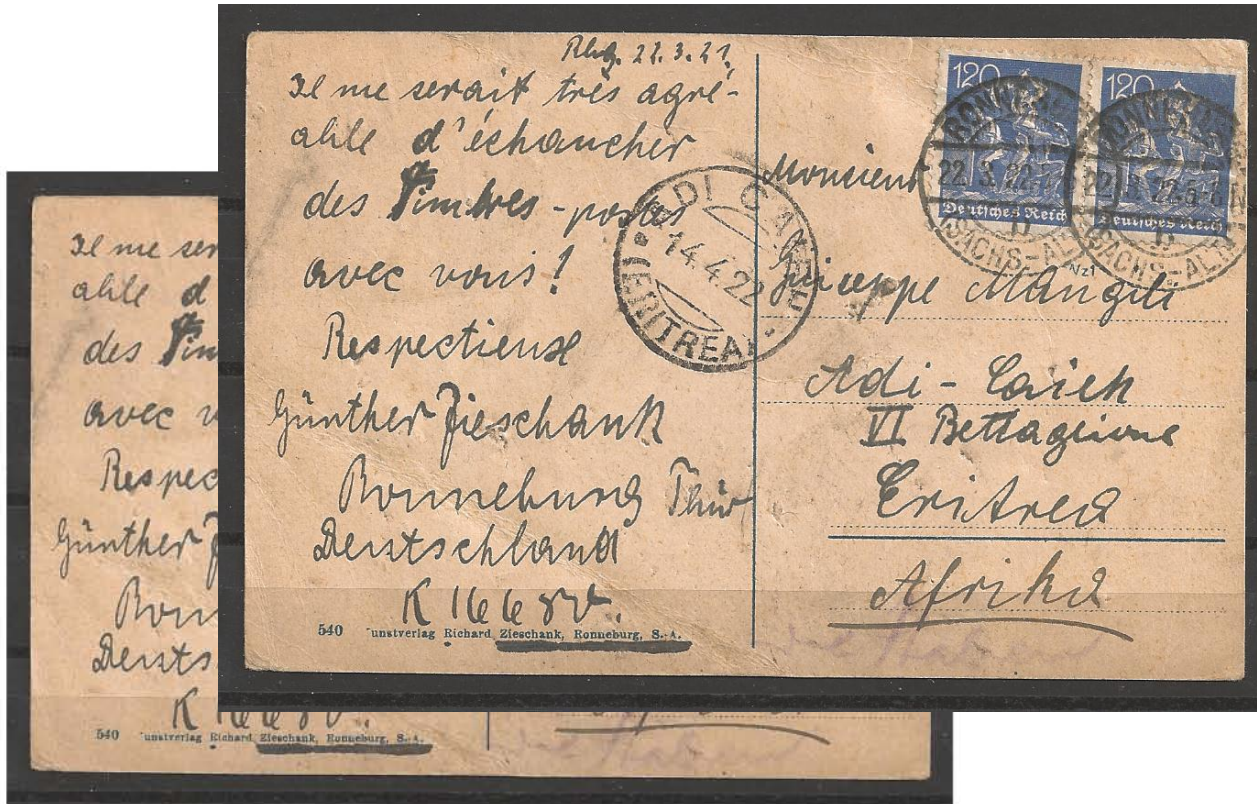 Rbg. 22.3.21.
Il me serait très agré-
able d'échancher
des Timbres-postes
avec vous!
Respectieuse
Günther Zieschank
Ronneburg Thür
Deutschland
540 unstverlag Richard Zieschank, Ronneburg, S.-A.
120
120
Deutsches Reich
Deutsches Reich
22.3.22
22.3.22.5-6
(SACHS-ALT
(SACHS-ALT
ADI CAIEH
14.4.22
(ERITREA)
Monsieur
Giuseppe Mangili
Adi-Caieh
VI Bettaglione
Eritrea
Afrika
Il me ser
able d
des Tim
avec v
Respec
Günther Z
Ronn
Deuts
540 unstverlag Richard Zieschank, Ronneburg, S.-A.